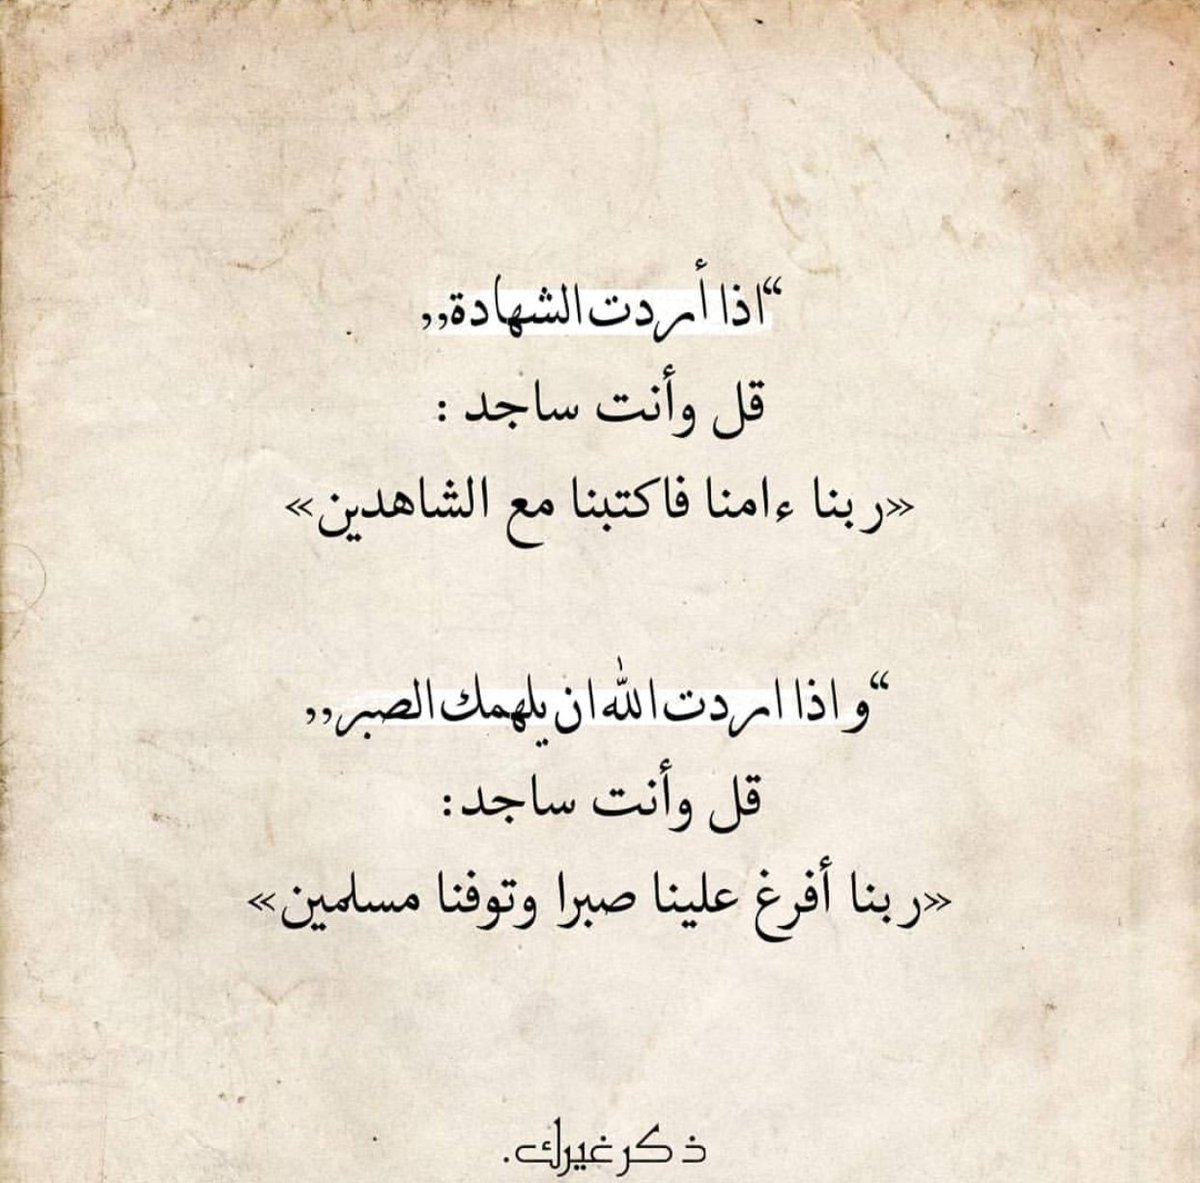 “اذا أردت الشهادة,,
قل وأنت ساجد :
«ربنا ءامنا فاكتبنا مع الشاهدين»
“و اذا اردت الله ان يلهمك الصبر,,
قل وأنت ساجد:
«ربنا أفرغ علينا صبرا وتوفنا مسلمين»
ذكر غيرك.